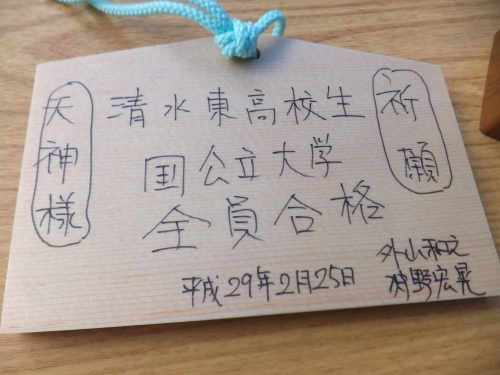 祈願
清水東高校生
国公立大学
全員合格
天神様
平成29年2月25日
外山和之
狩野宏晃